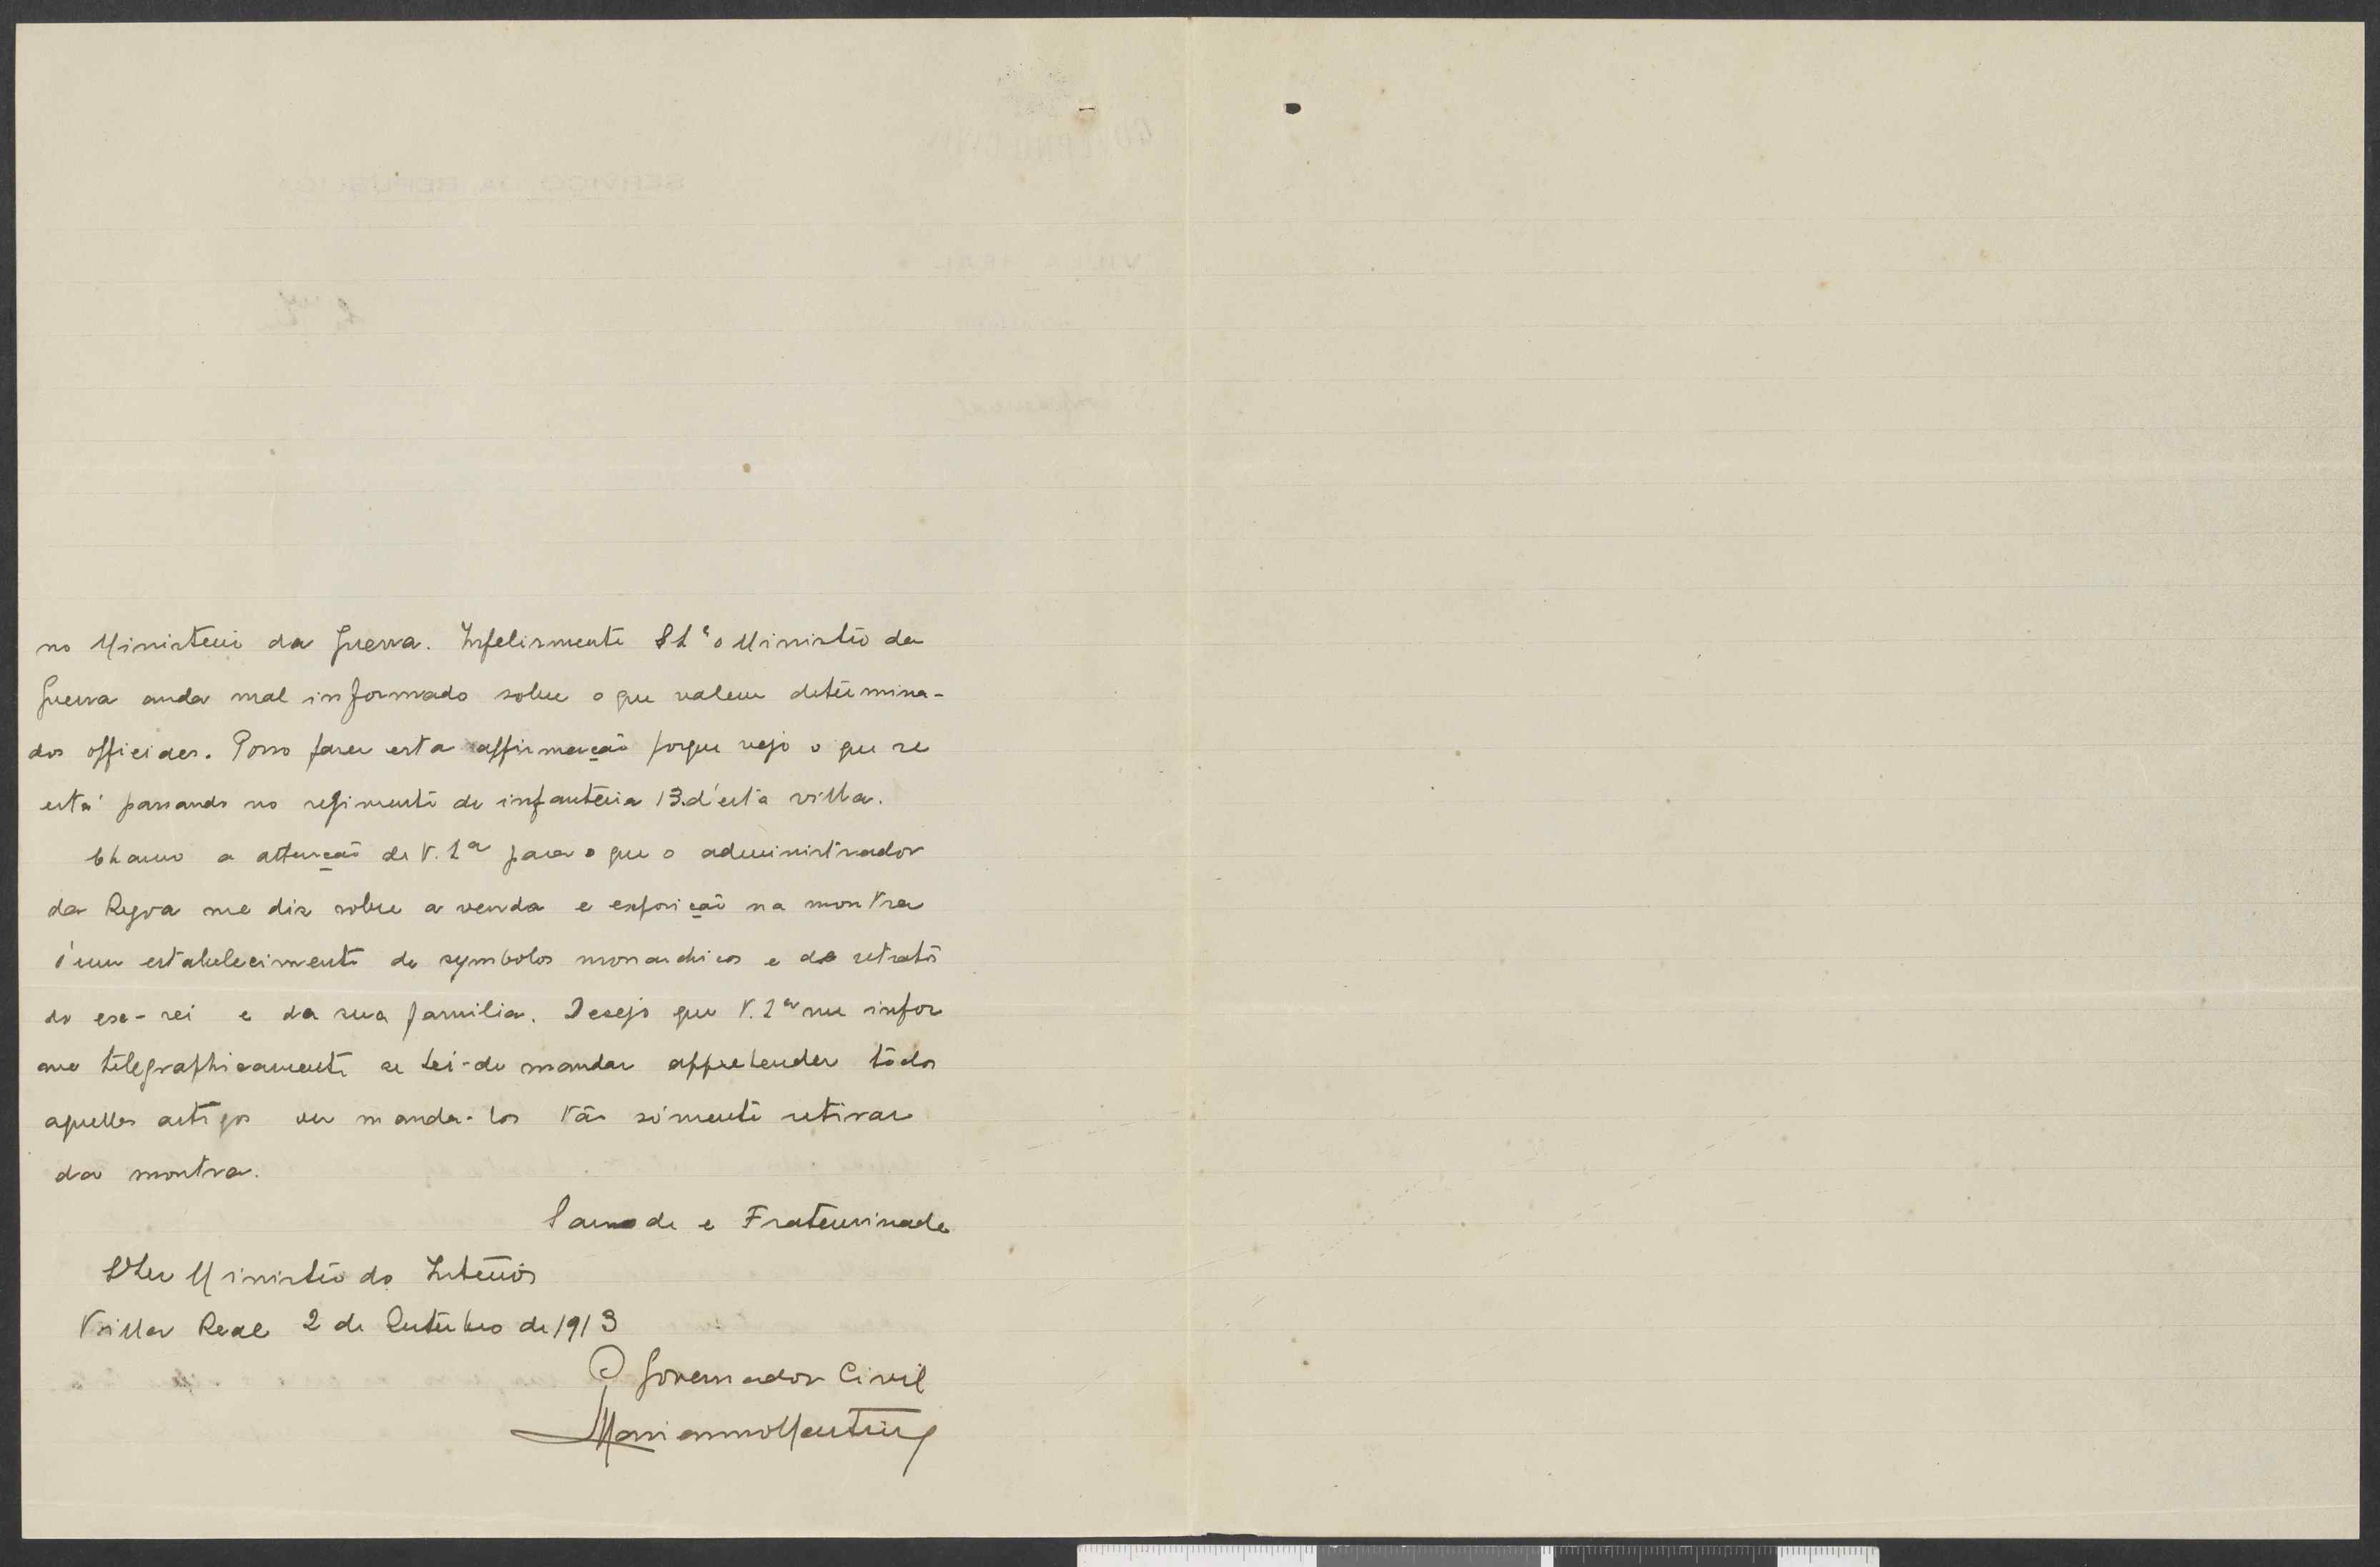 no Ministerio da Guerra. Infelismente S. Ex.ª o Ministro da
Guerra anda mal informado sobre o que valem determina-
dos officiaes. Posso fazer esta affirmação porque vejo o que se
está passando no regimento de infanteria 13 d'esta villa.
Chamo a attenção de V. Ex.ª para o que o administrador
da Regoa me diz sobre a venda e exposição na montra
d'um estabelecimento de symbolos monarchicos e de retratos
do ex-rei e da sua familia. Desejo que V. Ex.ª me infor
me telegraphicamente se hei-de mandar apprehender todos
aquelles artigos ou manda-los tão sómente retirar
da montra.
Saude e Fraternidade
Ministro do Interior
Villa Real 2 de Outubro de 1913
O Governador Civil
Marianno Martins